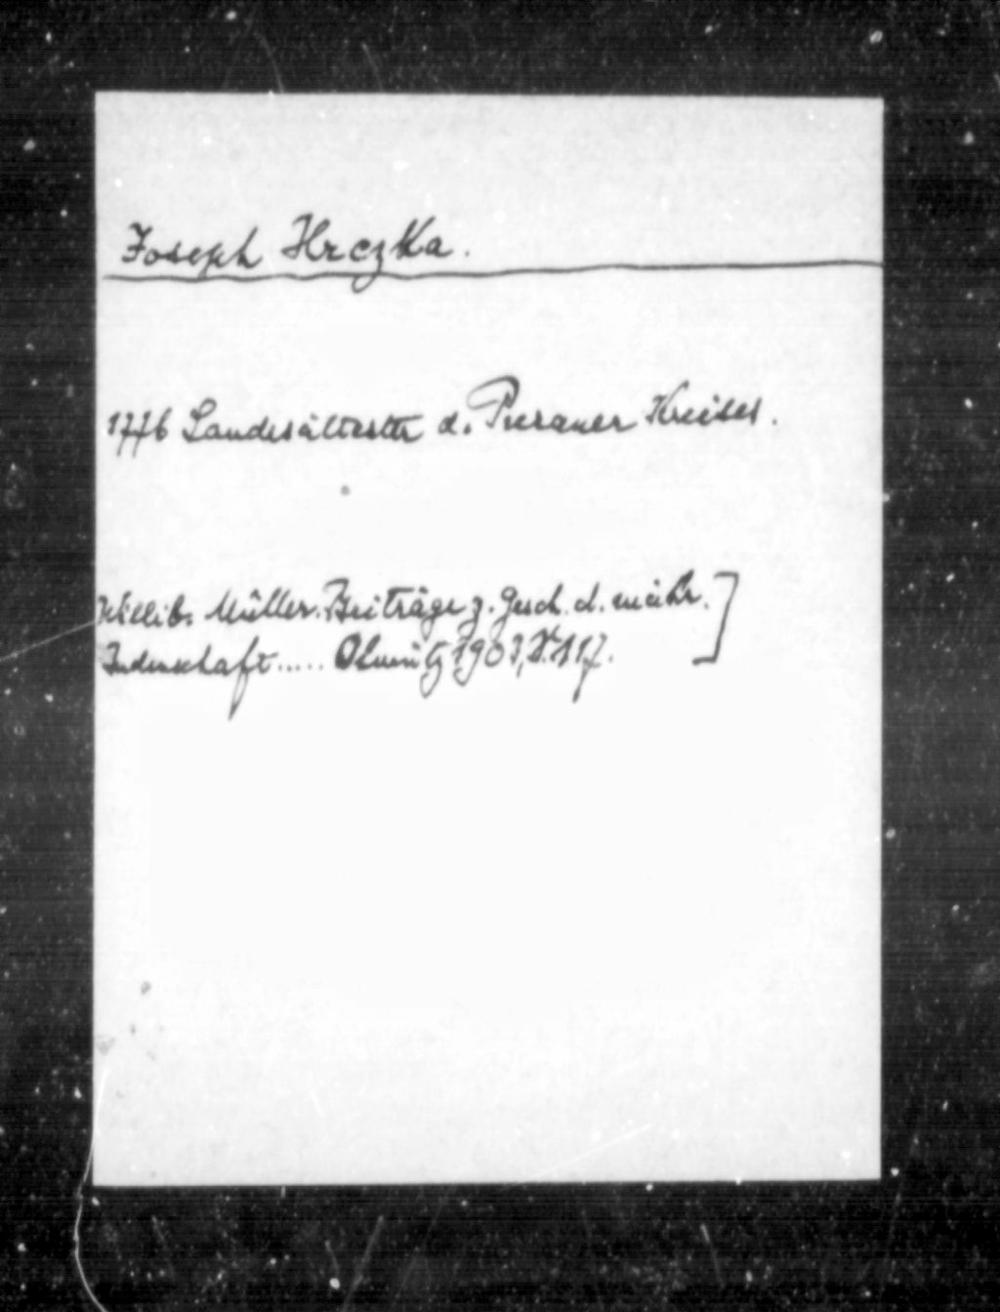 Joseph Hrczka.
1776 Landesältester d. Prerauer Kreises.
Willib. Müller. Beiträge z. Gesch. d. mähr.
Judenschaft..... Olmütz 1903, S. 117. ]